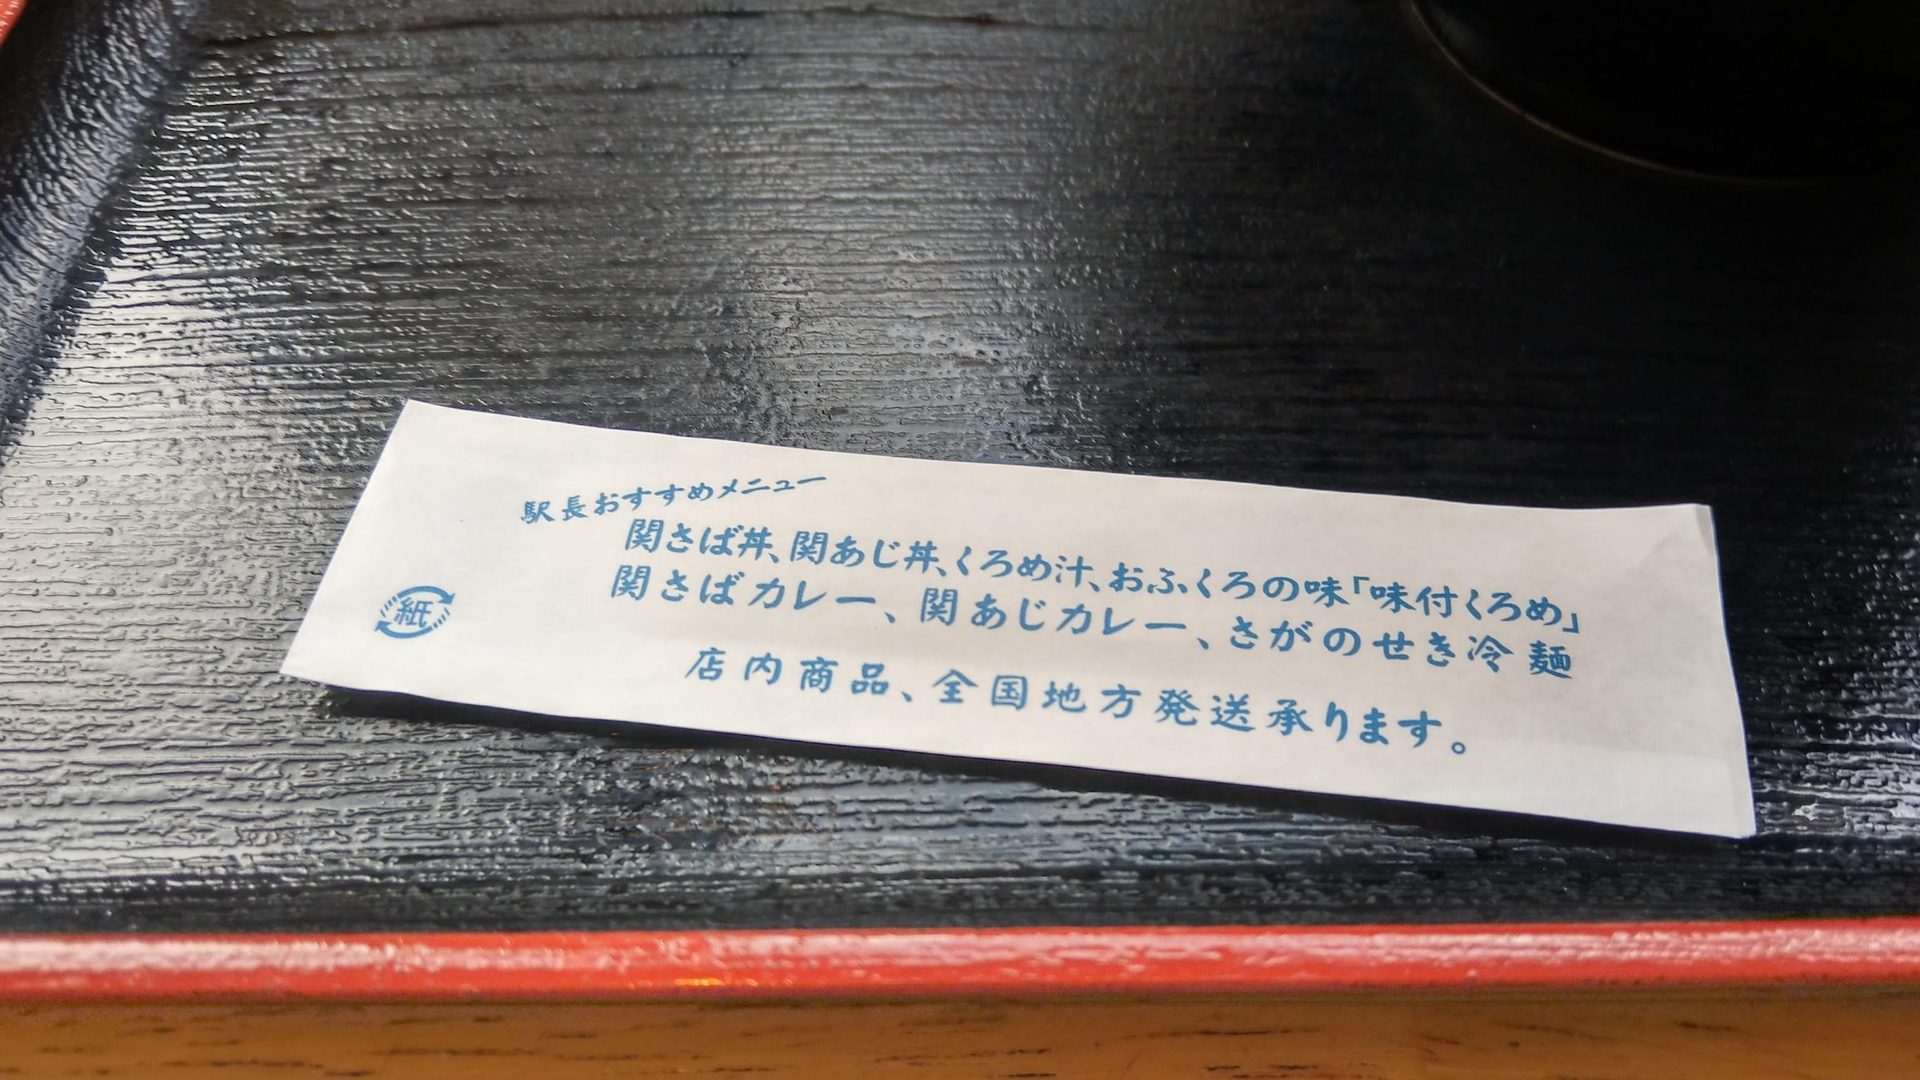 駅長おすすめメニュー
関さば丼、関あじ丼、くろめ汁、おふくろの味「味付くろめ」
関さばカレー、関あじカレー、さがのせき冷麺
店内商品、全国地方発送承ります。
紙